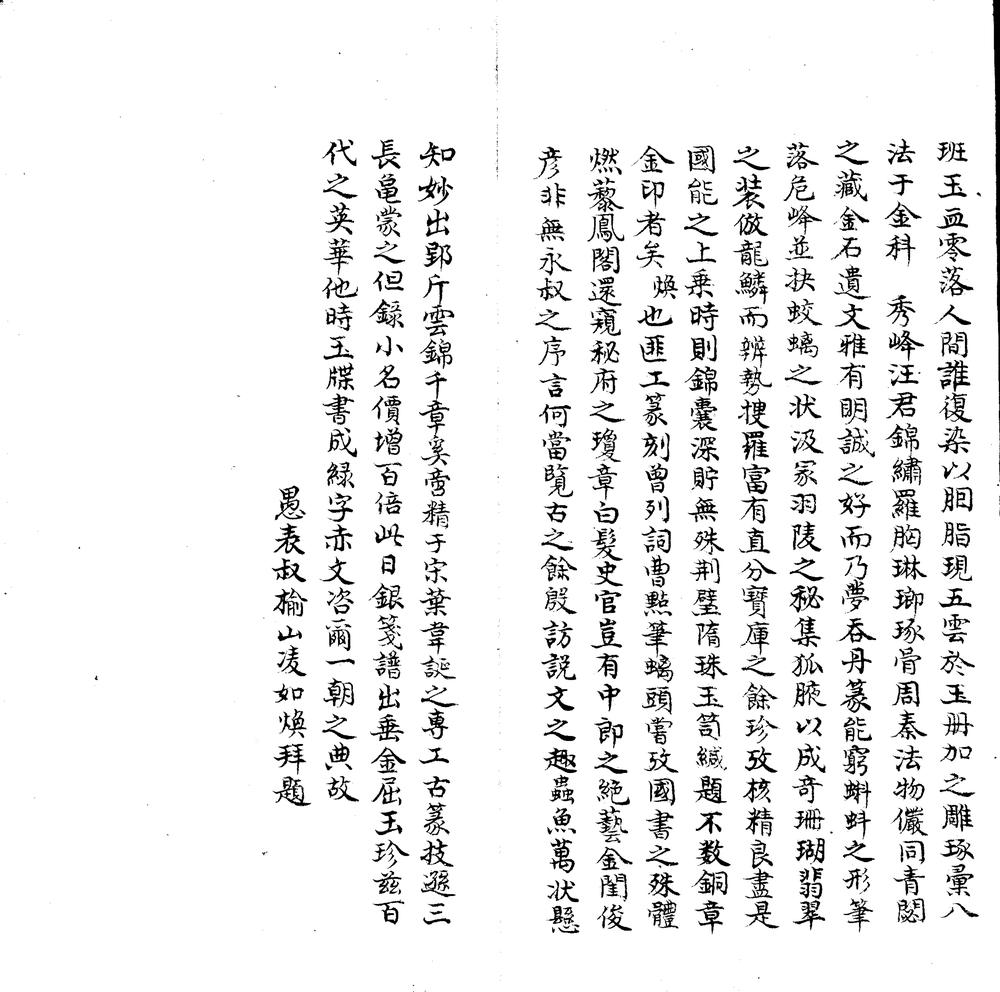 班玉血零落人間誰復染以胭脂現五雲於玉冊加之雕琢彙八
法于金科　秀峰汪君錦繡羅胸琳瑯琢骨周秦法物儼同青閟
之藏金石遺文雅有明誠之好而乃夢吞丹篆能窮蝌蚪之形筆
落危峰並抉蛟螭之状汲冢羽陵之秘集狐腋以成奇珊瑚翡翠
之裝倣龍鱗而辨勢搜羅富有直分寶庫之餘珍攷核精良盡是
國能之上乗時則錦囊深貯無殊荆璧隋珠玉笥緘題不数銅章
金印者矣　煥也匪工篆刻曾列詞曹㸃筆螭頭嘗攷國書之殊體
燃藜鳳閣還窺秘府之瓊章白髮史官豈有中郎之絕藝金閨俊
彦非無永叔之序言何當覽古之餘殷訪説文之趣蟲魚萬状懸
知妙出郢斤雲錦千章奚啻精于宋葉韋誕之專工古篆技遜三
長龜蒙之但錄小名價増百倍此日銀箋譜出垂金屈玉珍兹百
代之英華他時玉牒書成緑字赤文咨爾一朝之典故
愚表叔榆山凌如煥拜題